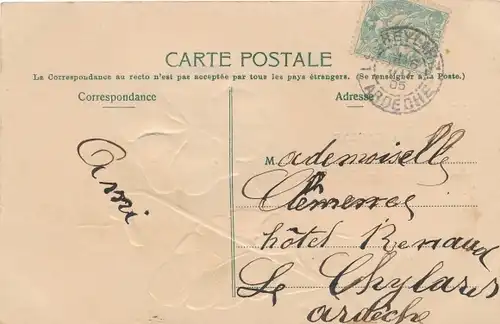 CARTE POSTALE
La Correspondance au recto n'est pas acceptée par tous les pays étrangers. (Se renseigner à la Poste.)
Correspondance
Adresse
Ademoiselle
Clémence
hôtel Renaux
Le Chylares
ardèche
ARDÈCHE
05